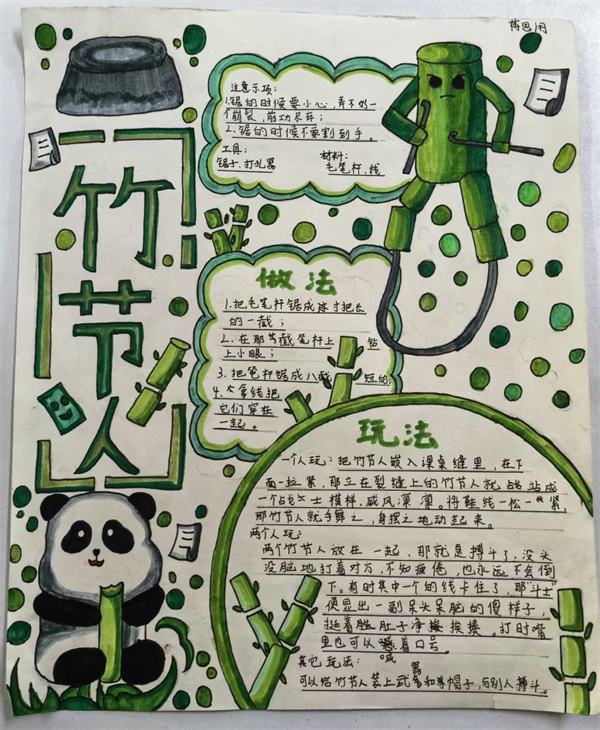 蒋思闲
竹节人
注意示项:
1.锯的时候要小心,弄不好一
个崩裂,前功尽弃;
2.锯的时候不要割到手。
工具:
锯子.打孔器
材料:
毛笔杆.线
做法
1.把毛笔杆锯成寸把长
的一截;
2.在那节截笔杆上钻
上小眼;
3.把笔杆锯成八截短的
4.拿线把
它们穿在
一起。
玩法
一个人玩:把竹节人嵌入课桌缝里,在下
面一拉紧,那立在裂缝上的竹节人就站成
一个战士模样,威风凛凛。将鞋线一松一紧,
那竹节人就手舞之,身摆之地动起来。
两个人玩:
两个竹节人放在一起,那就是搏斗了,没头
没脑地打着对方,不知疲倦,也永远不会倒
下。有时其中一个的线卡住了,那“斗士”
便显出一副呆头呆脑的傻样子,
挺着胜肚子净挨揍。打时嘴
里也可以喊着口号。
其它玩法:
可以给竹节人装上武器和帽子,与别人搏斗。